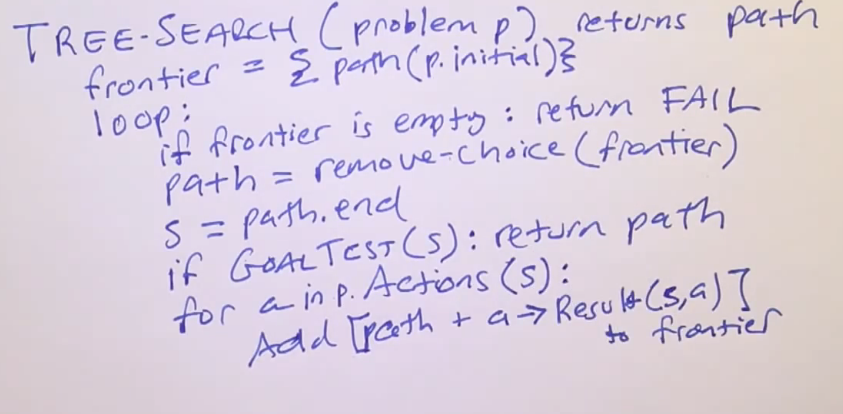 TREE-SEARCH (problem p) returns path
frontier = {path(p.initial)}
loop:
if frontier is empty: return FAIL
path = remove-choice(frontier)
s = path.end
if GOALTEST(s): return path
for a in p.Actions(s):
Add [path + a → Result(s,a)]
to frontier